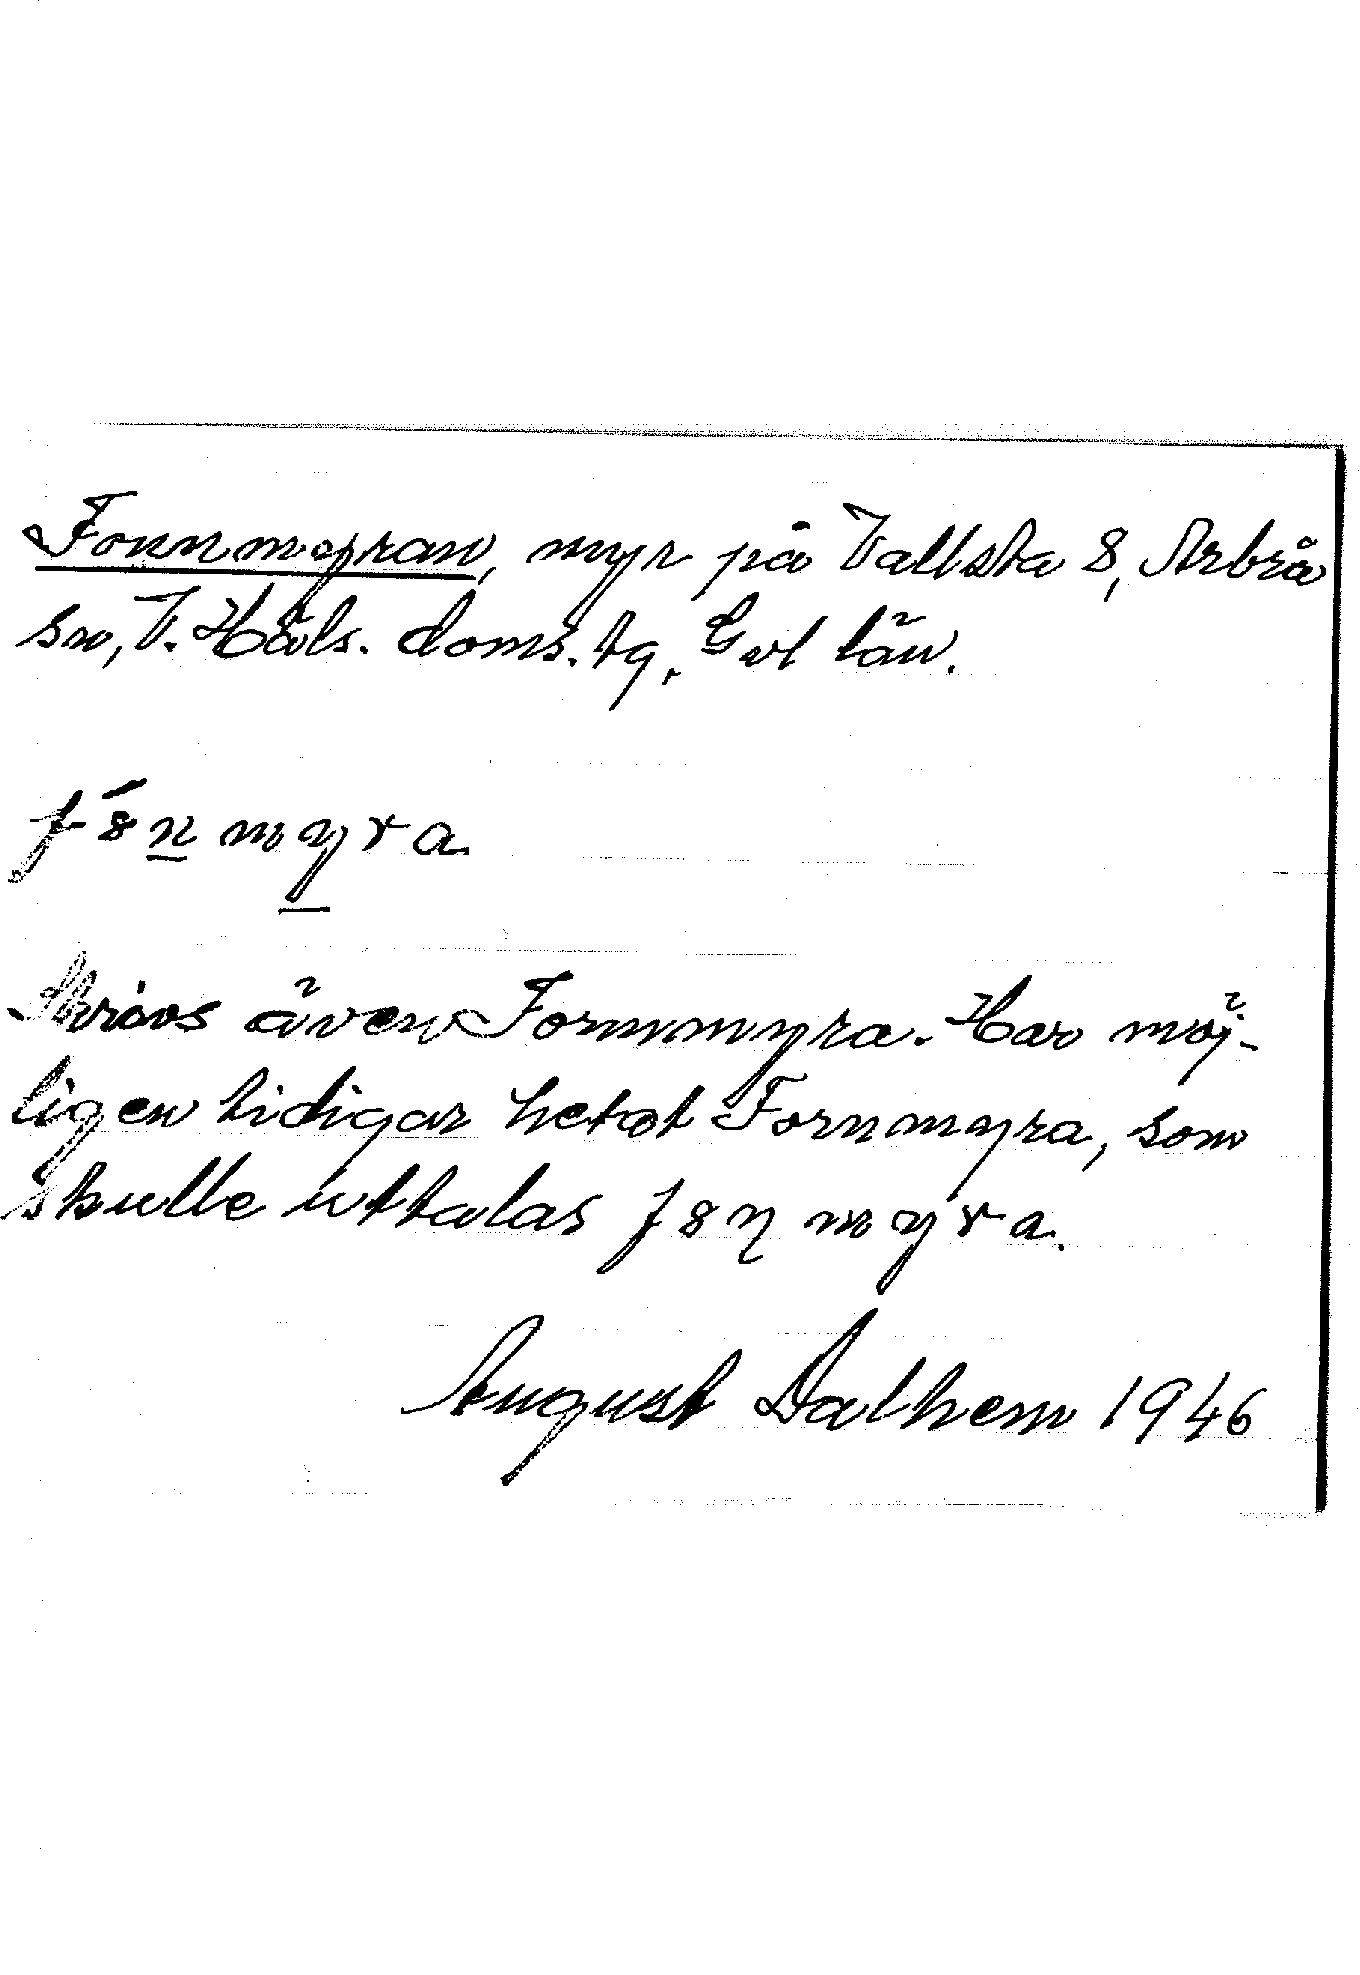 Fonnmyran, myr på Vallsta 8, Arbrå
sn, V. Häls. doms. tg, Gvl län.
f8́n̲my̲ra
Skrives även Fonnmyra. Har möj-
ligen tidigar hetat Fornmyra, som
skulle uttalas f8ɳmyra.
August Dalhem 1946